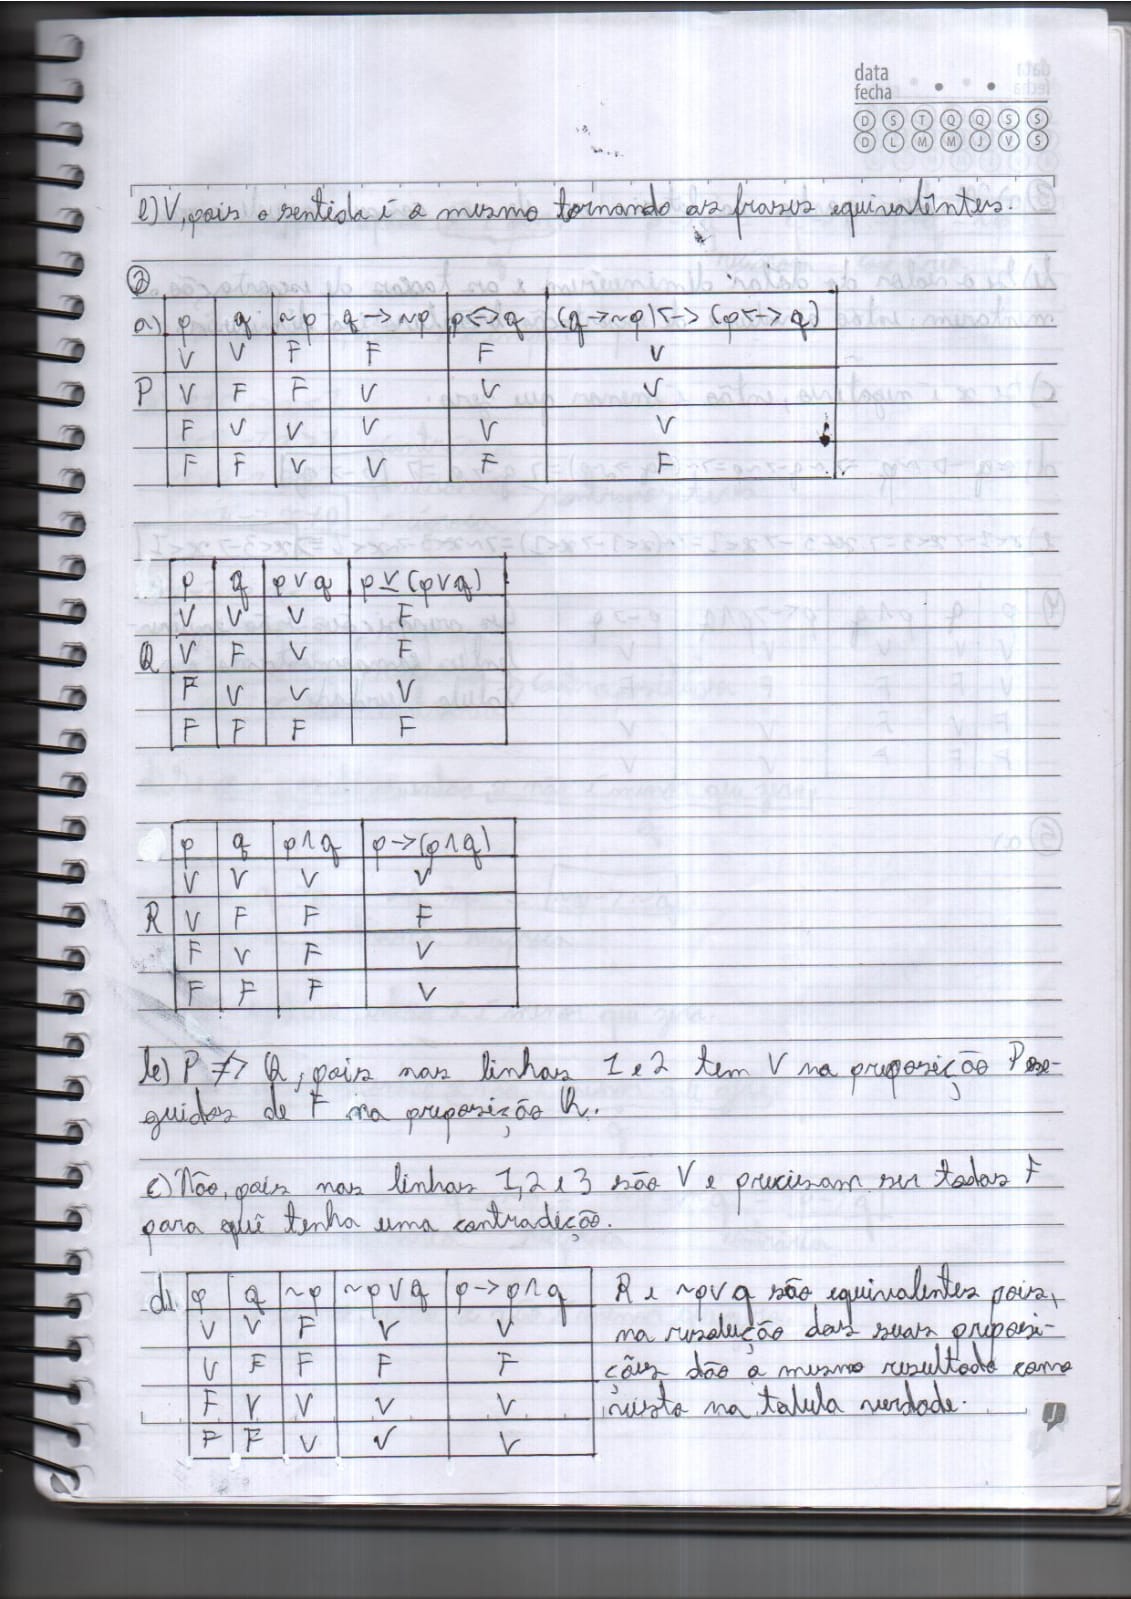 data
fecha
D S T Q Q S S
D L M M J V S
e) V, pois o sentido é o mesmo tornando as frases equivalêntes.
2
a) p q ~p q->~p p<->q (q->~p)<->(p<->q)
V V F F F V
P V F F V V V
F V V V V V
F F V V F F
p q p∨q p⊻(p∨q)
V V V F
Q V F V F
F V V V
F F F F
p q p∧q p->(p∧q)
V V V V
R V F F F
F V F V
F F F V
b) P ≠> Q, pois nas linhas 1 e 2 tem V na preposição P se-
guidos de F na preposição R.
c) Não, pois nas linhas 1,2 e 3 são V e precisam ser todas F
para quê tenha uma contradição.
d) p q ~p ~p∨q p->p∧q
V V F V V
V F F F F
F V V V V
F F V V V
R e ~p∨q são equivalentes pois,
na resolução das suas preposi-
ções dão o mesmo resultado como
visto na tabula verdade.